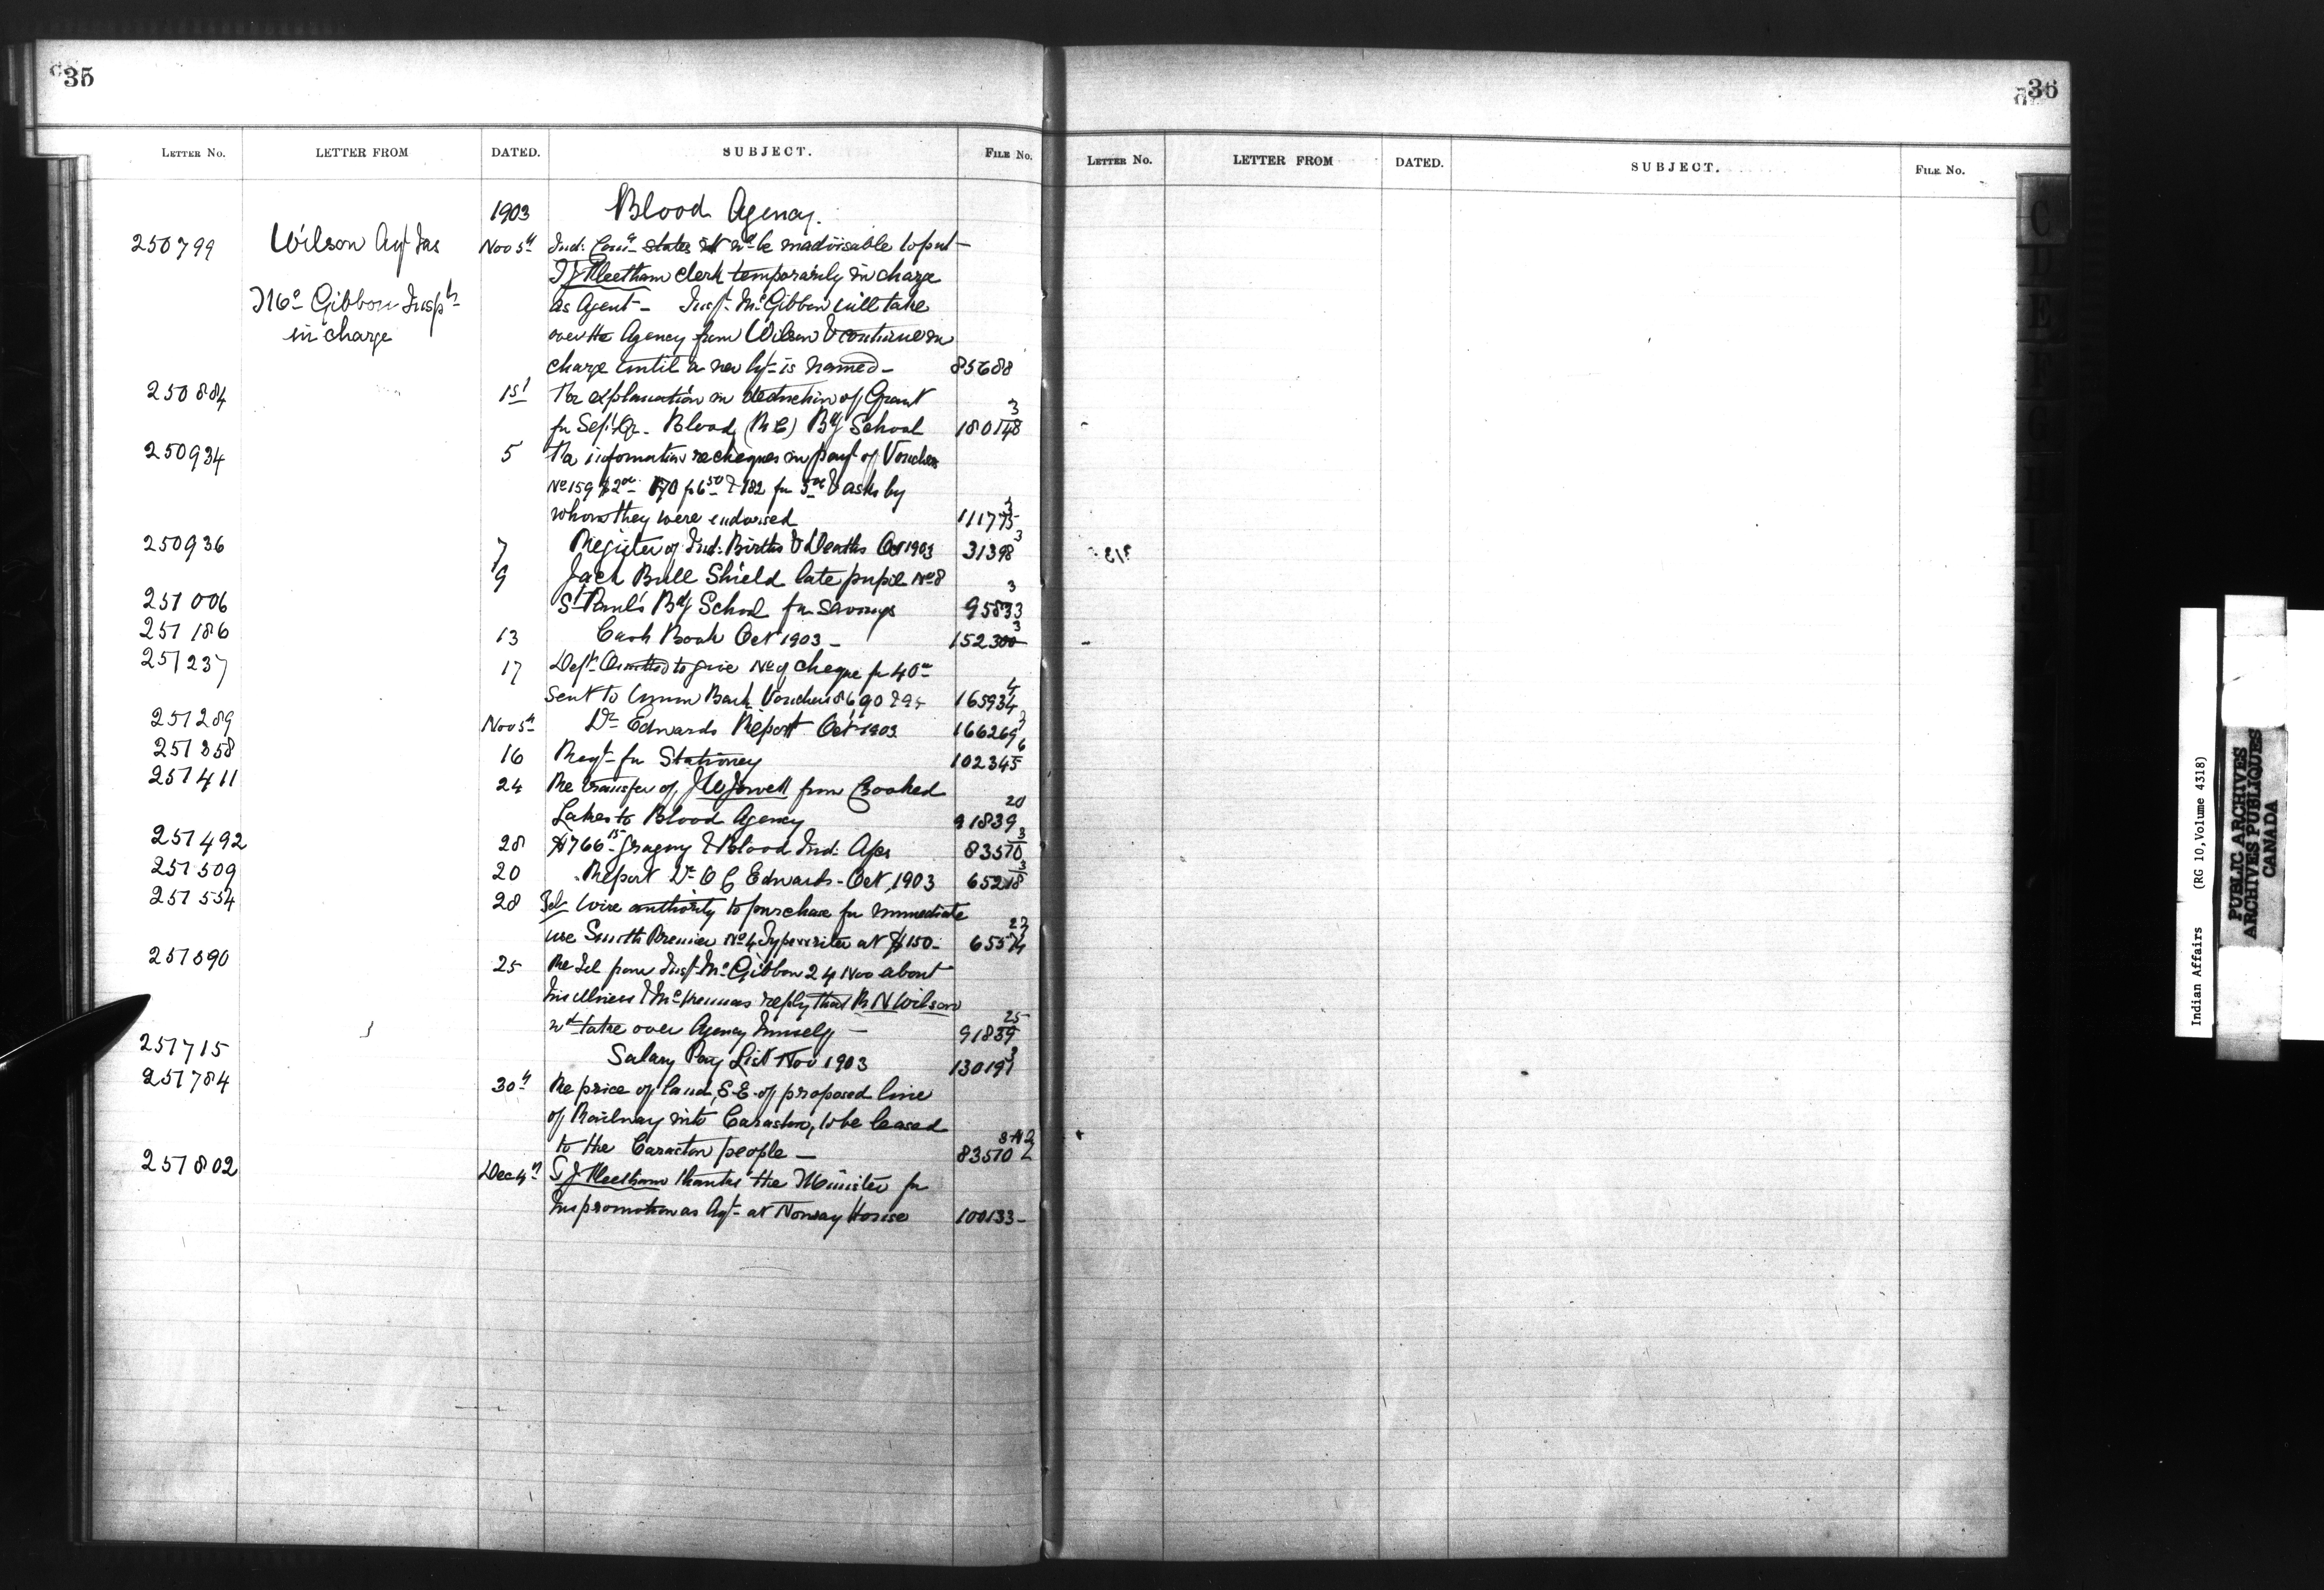 35
LETTER NO. LETTER FROM DATED. SUBJECT. FILE NO.
1903 Blood Agency.
250799 Wilson Agt Jas Nov 5th Ind: Comr states it wd be inadvisable to put
Mc Gibbon Inspr in charge
Meetham clerk temporarily in charge
as Agent - Inspr McGibbon will take
over the Agency from Wilson & continue in
charge until a new Agt is named - 85688
250884 1st Re explanation in deduction of Grant
for Sept Qr. Blood (R C) Bdg School 180148 3
250934 5 Re information re cheques in payt of Vouchers
No 159 170 & 182 & asks by
whom they were endorsed 111775 3
250936 7 Register of Ind: Births & Deaths Oct 1903 31398 3
9 Jack Bull Shield late pupil No 8
251006 St Paul's Bdg School for savings 95833 3
251186 13 Cash Book Oct 1903 - 152300 3
251237 17 Dept Omitted to give No of cheque for 40
sent to Bank Vouchers 86, 90 & 165934 4
251289 Nov 5th Dr Edwards Report Oct 1903 166269 3
251358 16 Reqt for Stationery 102345 6
251411 24 Re transfer of J W Jowett from Crooked
Lakes to Blood Agency 91839 20
251492 28 $766 15 Gragory & Blood Ind: 83570 3
251509 20 Report Dr O C Edwards - Oct, 1903 65218 3
251554 28 Tel wire authority to purchase for immediate
use Smith Premier No 4 Typewriter at $150 - 23
251590 25 Re Tel from Inspr McGibbon 24 Nov about
his illness & reply that R N Wilson
wd take over Agency himself - 91839 25
251715 Salary Pay List Nov 1903 130197 3
251784 30th Re price of land, S.E. of proposed line
of Railway into Caraston, to be leased
to the Caraston people - 83570
251802 Dec 4th S J Meetham thanks the Minister for
his promotion as Agt at Norway House 100133 -
36
LETTER NO. LETTER FROM DATED. SUBJECT. FILE NO.
C
D
E
F
G
H
Indian Affairs (RG 10, Volume 4318)
PUBLIC ARCHIVES
ARCHIVES PUBLIQUES
CANADA